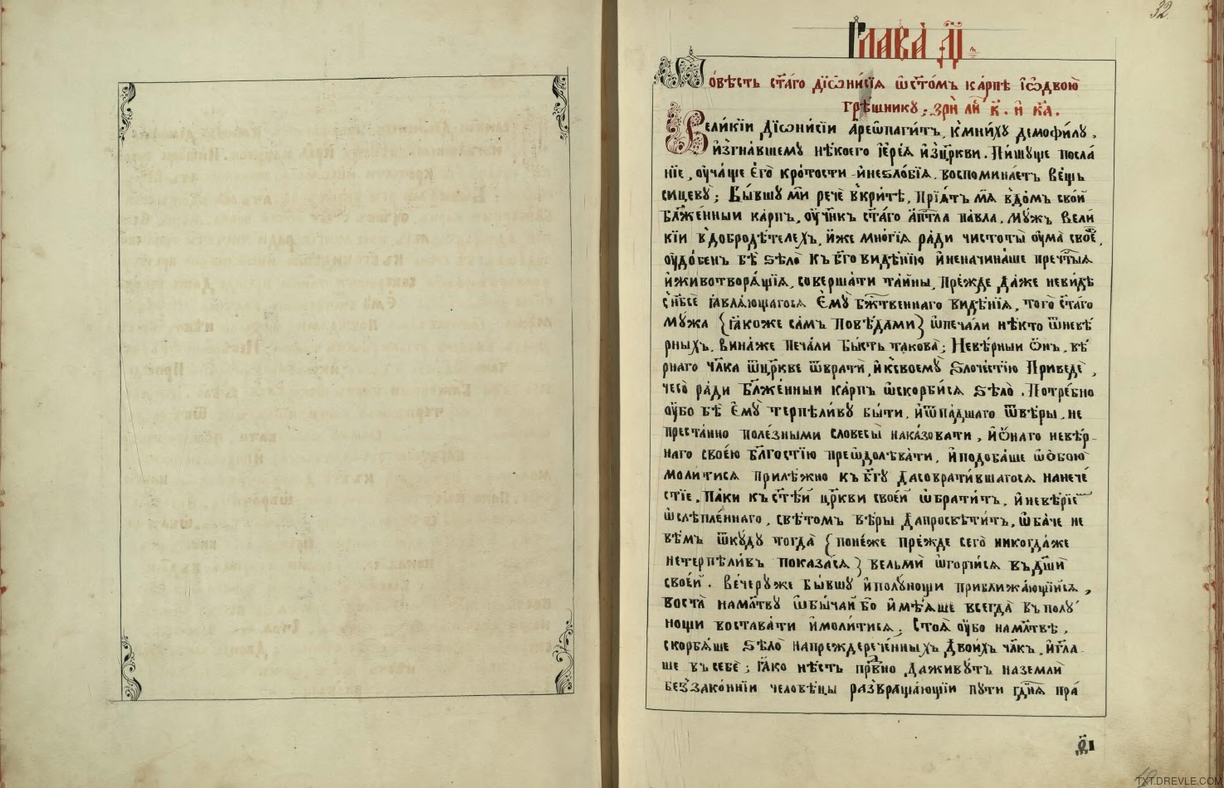 32
Глава д҃і.
Повѣсть ст҃а́гѡ дїѡни́сїя ѡ ст҃о́мъ ка́рпѣ і ѡ двою̀
грѣ́шникꙋ; зрѝ ли́ к҃. и҆ к҃а.
Вели́кїи Дїѡни́сїи А҆реѡпаги́тъ, к мни́хꙋ демофи́лꙋ,
и҆згна́вшемꙋ нѣ́коего і҆ере́ѧ и҆з цр҃кви. Пи́шꙋще посла́
нїе, оу҆ча́ще е҆го̀ кро́тости и҆ неѕло́бїѧ, воспомина́етъ ве́щь
сицевꙋ̀; Бы́вшꙋ мѝ речѐ в кри́тѣ, Прїѧ́тъ мѧ̀ в до́мъ сво́й
Бл҃же́нныи ка́рпъ, оу҆чн҃къ ст҃а́гѡ а҆пт҃ла па́вла. Мꙋ́жъ вели́
кїи в добродѣ́телехъ, и҆́же мно́гїѧ ра́ди чистоты̀ оу҆ма̀ своеѐ,
оу҆до́бенъ бѣ̀ ѕѣлѡ̀ къ Бг҃овидѣ́нїю и҆ не начина́ше пречⷭ҇тыѧ
и҆ животворѧ́щїѧ, соверша́ти та́йны, Пре́жде да́же не ви́дѣ
с нб҃сѐ ꙗ҆влѧ́ющагосѧ Є҆мꙋ̀ бж҃твеннаго видѣ́нїѧ, того̀ ст҃а́го
мꙋ́жа {ꙗ҆́коже са́мъ Повѣ́дами} ѡ҆печа́ли нѣ́кто ѿ невѣ́
рныхъ. Вина́ же печа́ли бы́сть такова̀; Невѣ́рныи ѻ҆́нъ, вѣ́
рнаго чл҃ка ѿ цр҃кве ѿвратѝ, и҆ к своемꙋ̀ ѕлоче́стїю Приведѐ,
чесо̀ ра́ди Бл҃же́нныи ка́рпъ ѡ҆скорби́сѧ ѕѣлѡ̀. Потре́бно
оу҆́бо бѣ̀ Є҆мꙋ̀ терпѣли́вꙋ бы́ти, и҆ ѿпа́дшаго ѿ вѣ́ры, не
преста́нно поле́зными словесы̀ наказова́ти, и҆ ѻ҆́наго невѣ́р-
наго свое́ю бл҃гостїю преѡдолѣва́ти, и҆ подоба́ше ѡ҆ ѻ҆бою̀
моли́тисѧ прилѣ́жно къ Бг҃ꙋ да соврати́вшагосѧ на нече́
стїе, па́ки къ ст҃ѣ́й цр҃кви свое́й ѡ҆брати́тъ, и҆ невѣ́рїе
ѡ҆слѣпле́ннаго, свѣ́томъ вѣ́ры да просвѣти́тъ, ѡ҆ба́че не
вѣ́мъ ѿкꙋ́дꙋ тогда̀ {поне́же пре́жде сего̀ никогда́же
нетерпѣли́въ показа́сѧ} вельмѝ ѡ҆горчи́сѧ въ дш҃и
свое́й. Ве́черꙋ же бы́вшꙋ и҆ полꙋ́нощи приближа́ющїйсѧ,
воста̀ на мл҃твꙋ ѡ҆бы́чай бо и҆мѣ́ѧше всегда̀ въ полꙋ̀
нощи востава́ти и҆ моли́тисѧ; Стоѧ̀ оу҆́бо на мл҃твѣ,
скорбѧ́ше ѕѣлѡ̀ на преждерече́нныхъ двои́хъ чл҃къ, и҆ гл҃а
ше въ себѣ̀; ꙗ҆́ко нѣ́сть пра́вⷣно да живꙋ́тъ на землѝ
беззако́ннїи человѣ́цы развраща́ющїи пꙋтѝ гдⷭ҇нѧ пра́
TXT.DREVLE.COM